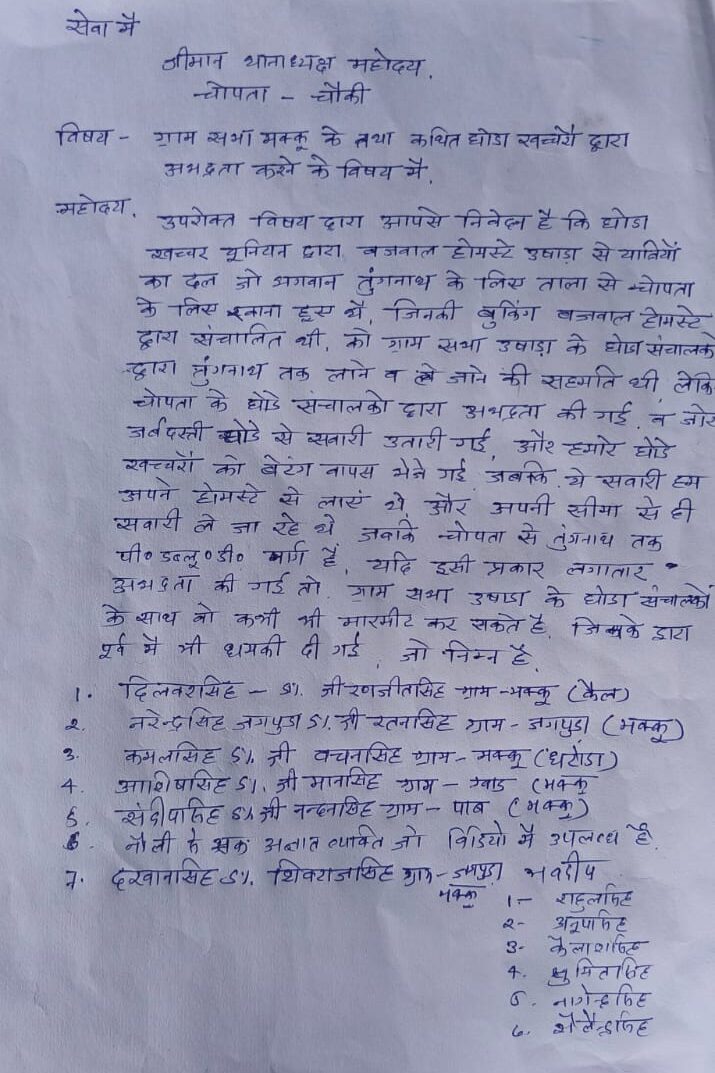 सेवा में
श्रीमान थानाध्यक्ष महोदय,
चोपता - चौकी
विषय - ग्राम सभा मक्कू के तथा कथित घोडा खच्चरों द्वारा
अभद्रता करने के विषय में,
महोदय,
उपरोक्त विषय द्वारा आपसे निवेदन है कि घोडा
खच्चर यूनियन द्वारा, बजवाल होमस्टे उषाडा से यात्रियों
का दल जो भगवान तुंगनाथ के लिए ताला से चोपता
के लिए रवाना हुए थे, जिनकी बुकिंग बजवाल होमस्टे
द्वारा संचालित थी, को ग्राम सभा उषाडा के घोडा संचालको
द्वारा तुंगनाथ तक लाने व ले जाने की सहमति थी लेकि
चोपता के घोडे संचालको द्वारा अभद्रता की गई, व जोर
जर्बदस्ती घोडे से सवारी उतारी गई, और हमारे घोडे
खच्चरों को बेरंग वापस भेजे गई, जबकि ये सवारी हम
अपने होमस्टे से लाएं थे, और अपनी सीमा से ही
सवारी ले जा रहे थे, जबकि चोपता से तुंगनाथ तक
पी० डब्लू० डी० मार्ग है, यदि इसी प्रकार लगातार
अभद्रता की गई तो, ग्राम सभा उषाडा के घोडा संचालकों
के साथ वो कभी भी मारमीट कर सकते है, जिनके द्वारा
पूर्व में भी धमकी दी गई, जो निम्न है,
1. दिलवरसिंह - S/. श्री रणजीतसिंह ग्राम - मक्कू (कैल)
2. नरेन्द्रसिंह जगपुडा S/. श्री रतनसिंह ग्राम - जगपुडा (मक्कू)
3. कमलसिंह S/. श्री वचनसिंह ग्राम - मक्कू
4. आशिषसिंह S/. श्री मानसिंह ग्राम - ग्वाड (मक्कू
5. संदीपसिंह S/. श्री नन्दनसिंह ग्राम - पाब (मक्कू)
6. नौली के एक अज्ञात व्यक्ति जो विडियो में उपलब्ध है,
7. दरवानसिंह S/. शिवराजसिंह ग्राम - जगपुडा भवदीय
मक्कू
1 - राहुलसिंह
2 - अनूपसिंह
3 - कैलाशसिंह
4. सुमितसिंह
5. नागेन्द्रसिंह
6. शैलेन्द्रसिंह